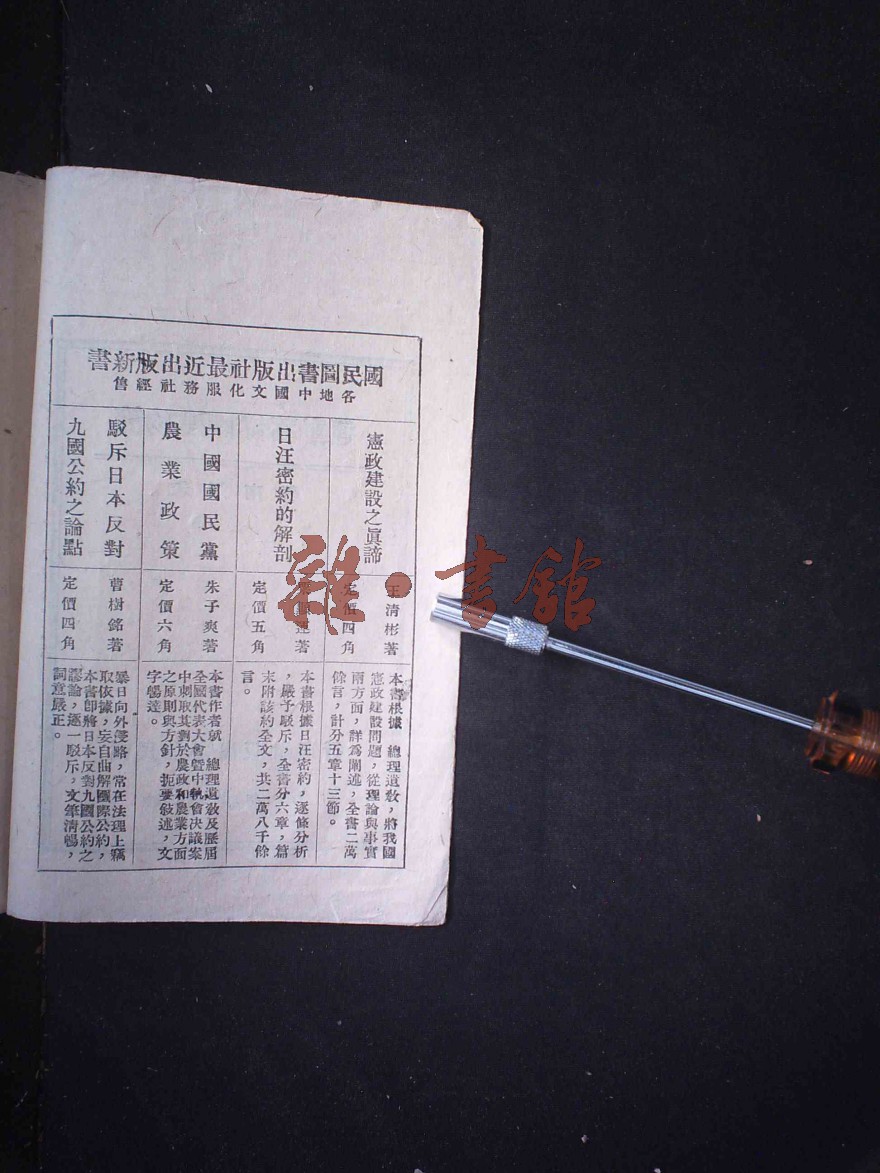 國民圖書出版社最近出版新書
各地中國文化服務社經售
憲政建設之眞諦
王清彬著
定價四角
本書根據　總理遺敎，將我國
憲政建設問題，從理論與事實
兩方面，詳爲闡述，全書二萬
餘言，計分五章十三節。
日汪密約的解剖
著
定價五角
本書根據日汪密約，逐條分析
，嚴予駁斥，全書分六章，篇
末附該約全文，共二萬八千餘
言。
中國國民黨
農業政策
朱子爽著
定價六角
本書作者就　總理遺敎及歷屆
全國代表大會曁中執會決議案
中刺取其對於農政和農業方面
之原則與方針，扼要敍述，文
字暢達。
駁斥日本反對
九國公約之論點
曹樹銘著
定價四角
暴日向外侵略，常在法理上竊
取依據，妄自曲解國際公約，
本書卽將日本反對九國公約之
謬論，逐一駁斥，文筆清暢，
詞意嚴正。
雜·書館